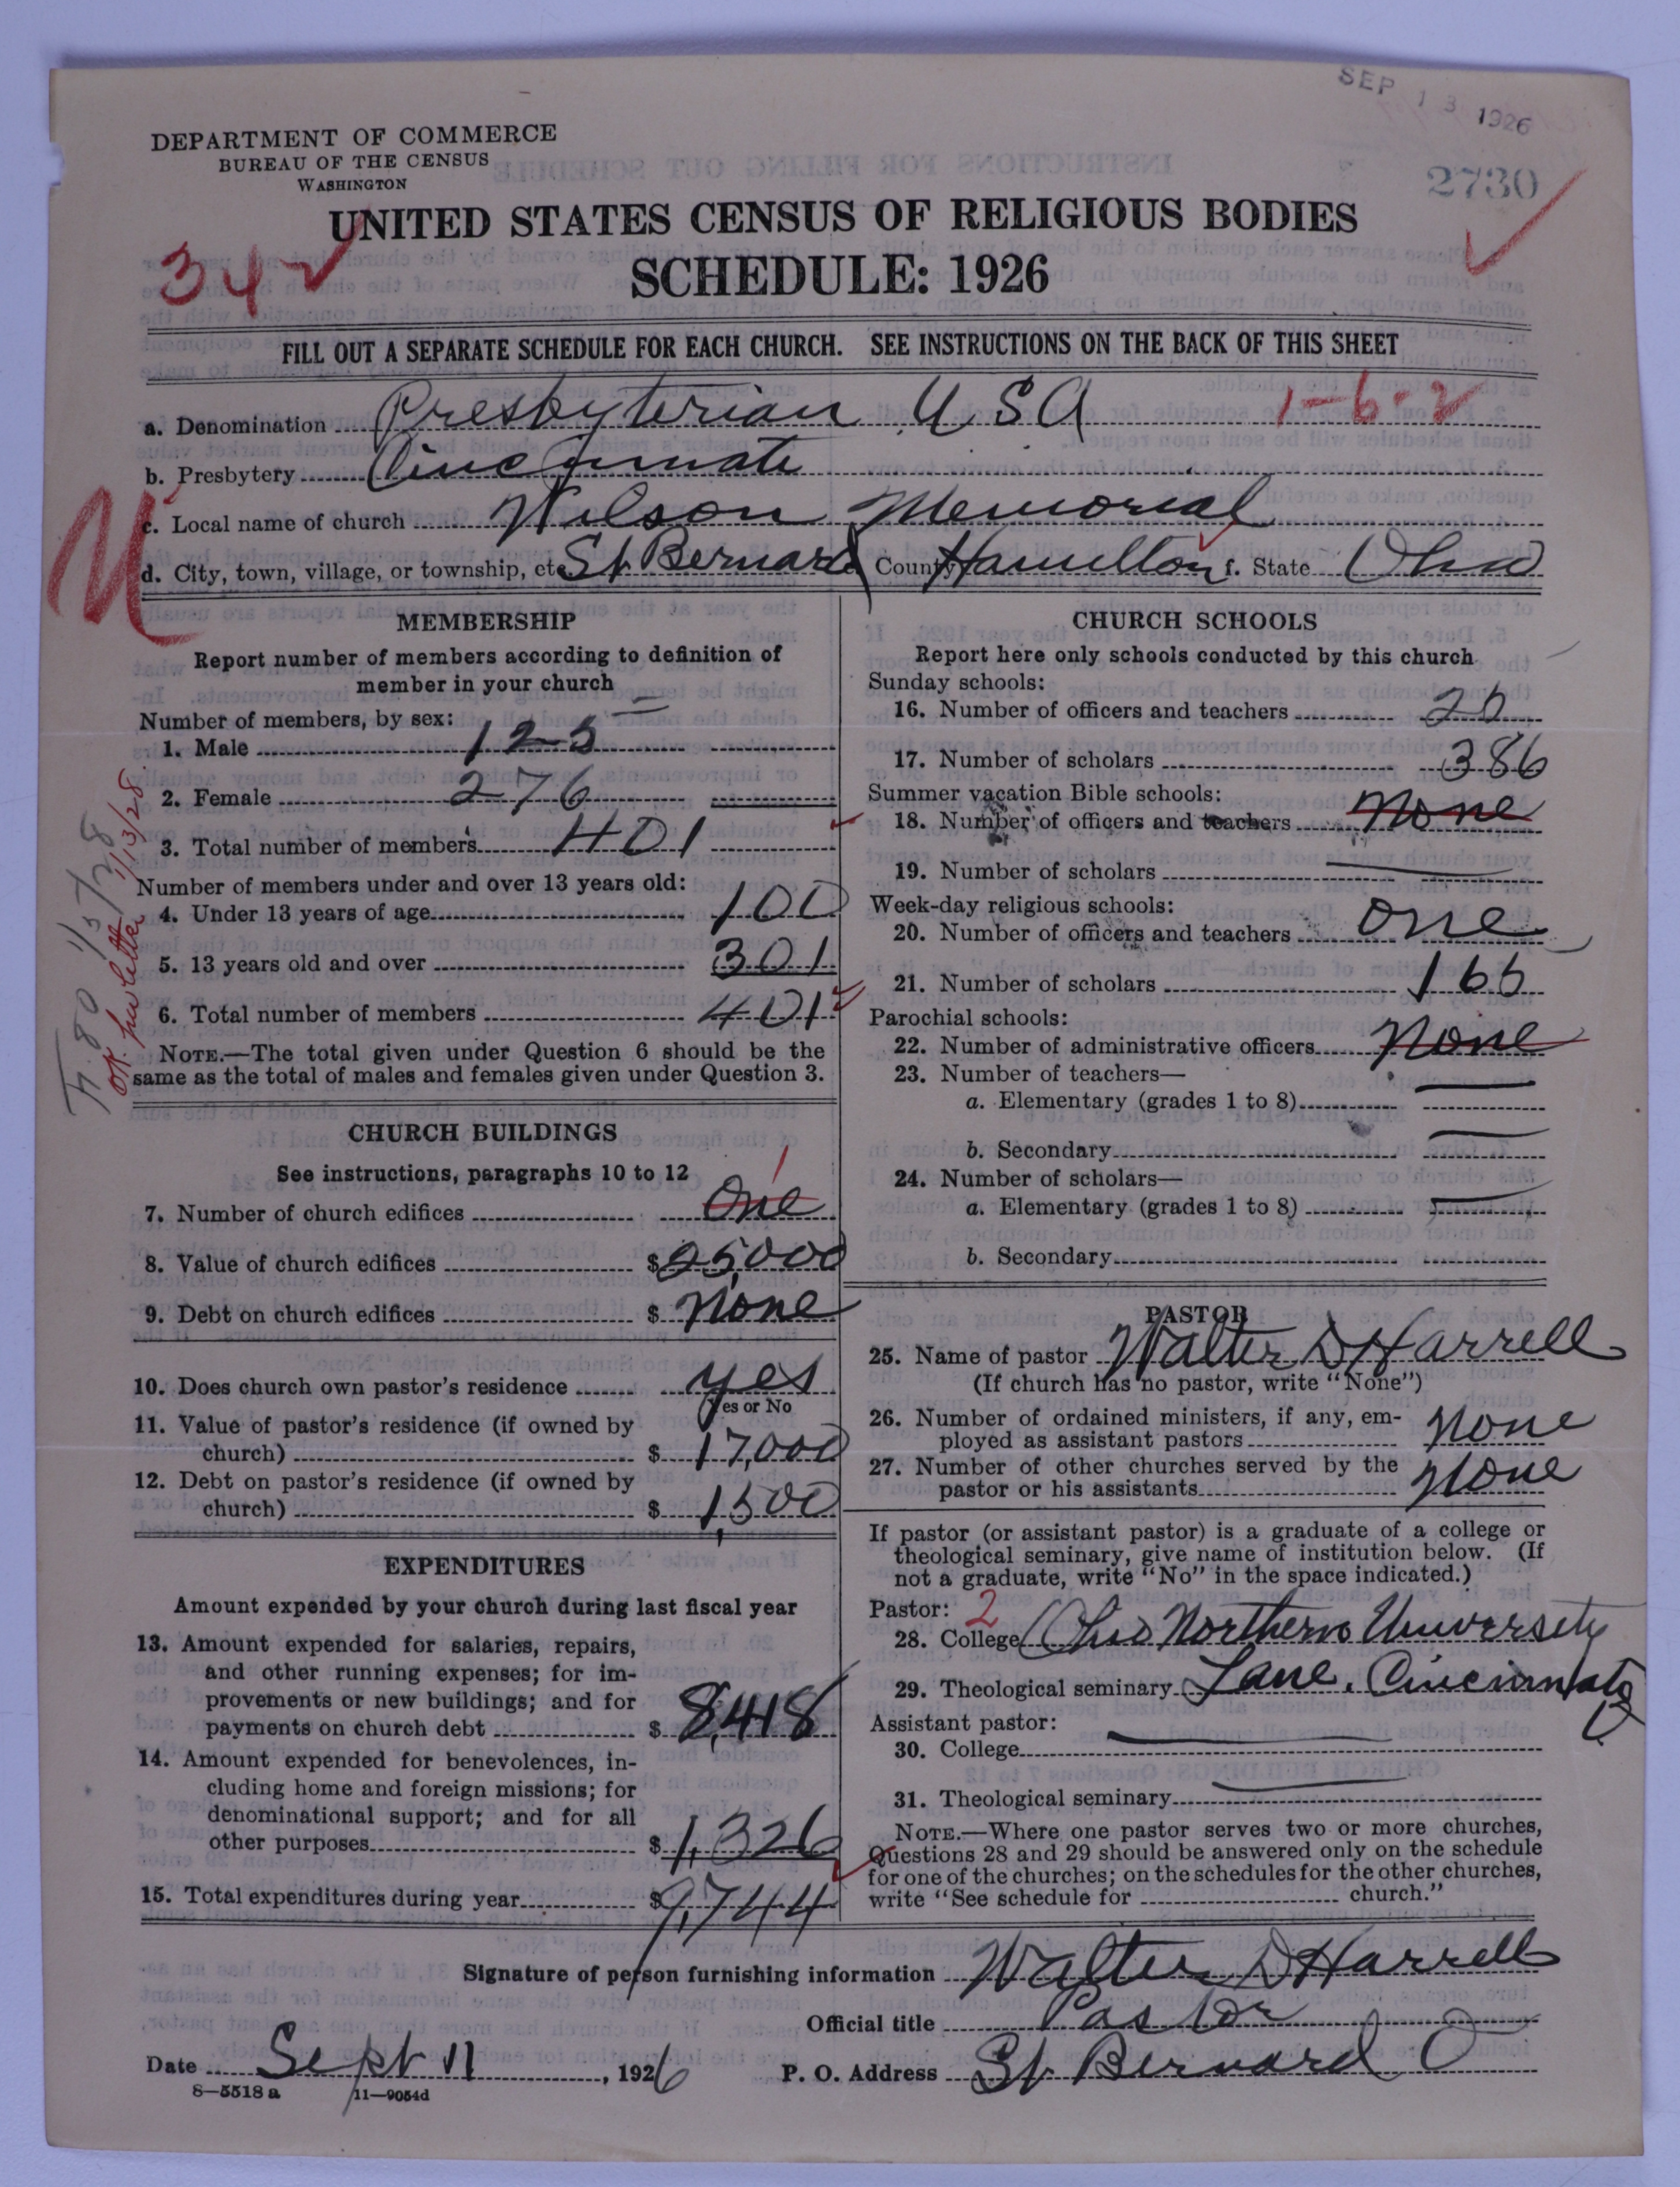 SEP 13 1926
DEPARTMENT OF COMMERCE
BUREAU OF THE CENSUS
WASHINGTON
2730
UNITED STATES CENSUS OF RELIGIOUS BODIES
34
SCHEDULE: 1926
FILL OUT A SEPARATE SCHEDULE FOR EACH CHURCH. SEE INSTRUCTIONS ON THE BACK OF THIS SHEET
a. Denomination Presbyterian USA 1-6-2
b. Presbytery Cincinnati
c. Local name of church Wilson Memorial
d. City, town, village, or township, etc. St Bernard County Hamilton f. State Ohio
MEMBERSHIP
Report number of members according to definition of
member in your church
Number of members, by sex:
1. Male 125
2. Female 276
3. Total number of members 401
Number of members under and over 13 years old:
4. Under 13 years of age 100
5. 13 years old and over 301
6. Total number of members 401
NOTE.—The total given under Question 6 should be the
same as the total of males and females given under Question 3.
F. 80 1/3/28
OK per letter 1/13/28
CHURCH BUILDINGS
See instructions, paragraphs 10 to 12
1
7. Number of church edifices One
8. Value of church edifices $25,000
9. Debt on church edifices $ None
10. Does church own pastor's residence yes
(Yes or No
11. Value of pastor's residence (if owned by
church) $ 17,000
12. Debt on pastor's residence (if owned by
church) $ 1,500
EXPENDITURES
Amount expended by your church during last fiscal year
13. Amount expended for salaries, repairs,
and other running expenses; for im-
provements or new buildings; and for
payments on church debt $ 8,418
14. Amount expended for benevolences, in-
cluding home and foreign missions; for
denominational support; and for all
other purposes $ 1,326
15. Total expenditures during year $9,744
CHURCH SCHOOLS
Report here only schools conducted by this church
Sunday schools:
16. Number of officers and teachers
17. Number of scholars 386
Summer vacation Bible schools:
18. Number of officers and teachers None
19. Number of scholars
Week-day religious schools:
20. Number of officers and teachers One
21. Number of scholars
Parochial schools:
22. Number of administrative officers None
23. Number of teachers—
a. Elementary (grades 1 to 8)
b. Secondary
24. Number of scholars—
a. Elementary (grades 1 to 8)
b. Secondary
PASTOR
25. Name of pastor Walter D Harrell
(If church has no pastor, write "None")
26. Number of ordained ministers, if any, em-
ployed as assistant pastors None
27. Number of other churches served by the
pastor or his assistants None
If pastor (or assistant pastor) is a graduate of a college or
theological seminary, give name of institution below. (If
not a graduate, write "No" in the space indicated.)
Pastor: 2
28. College Ohio Northern University
29. Theological seminary Lane, Cincinnati
Assistant pastor:
30. College
31. Theological seminary
NOTE.—Where one pastor serves two or more churches,
Questions 28 and 29 should be answered only on the schedule
for one of the churches; on the schedules for the other churches,
write "See schedule for church."
Signature of person furnishing information Walter D Harrell
Official title Pastor
Date Sept 11, 1926 P. O. Address St Bernard O
8—5518 a 11—9054d